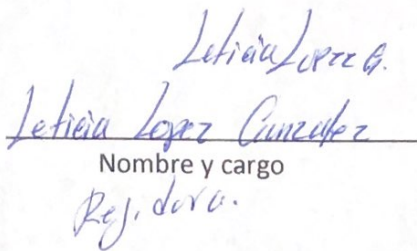 Leticia Lopez G.
Leticia Lopez Gonzalez
Nombre y cargo
Regidora.